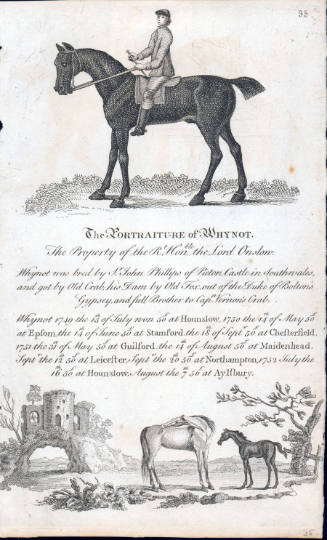 38
The PORTRAITURE of WHYNOT.
The Property of the Rt. Honble. the Lord Onslow.
Whynot was bred by Sr. John Phillips of Picton Castle in Southwales,
and got by Old Crab; his Dam by Old Fox, out of the Duke of Bolton's
Gypsey, and full Brother to Capn. Vernon's Crab.
Whynot 1749 the 13 of July won 50 at Hounslow, 1750 the 24 of May 50
at Epsom, the 14 of June 50 at Stamford, the 18 of Sept. 50 at Chesterfield,
1751 the 31 of May 50 at Guilford, the 14 of August 50 at Maidenhead.
Sept. the 12 50 at Leicester, Sept. the 20 50 at Northampton, 1752 July the
16 50 at Hounslow, August the 7 50 at Aylsbury.